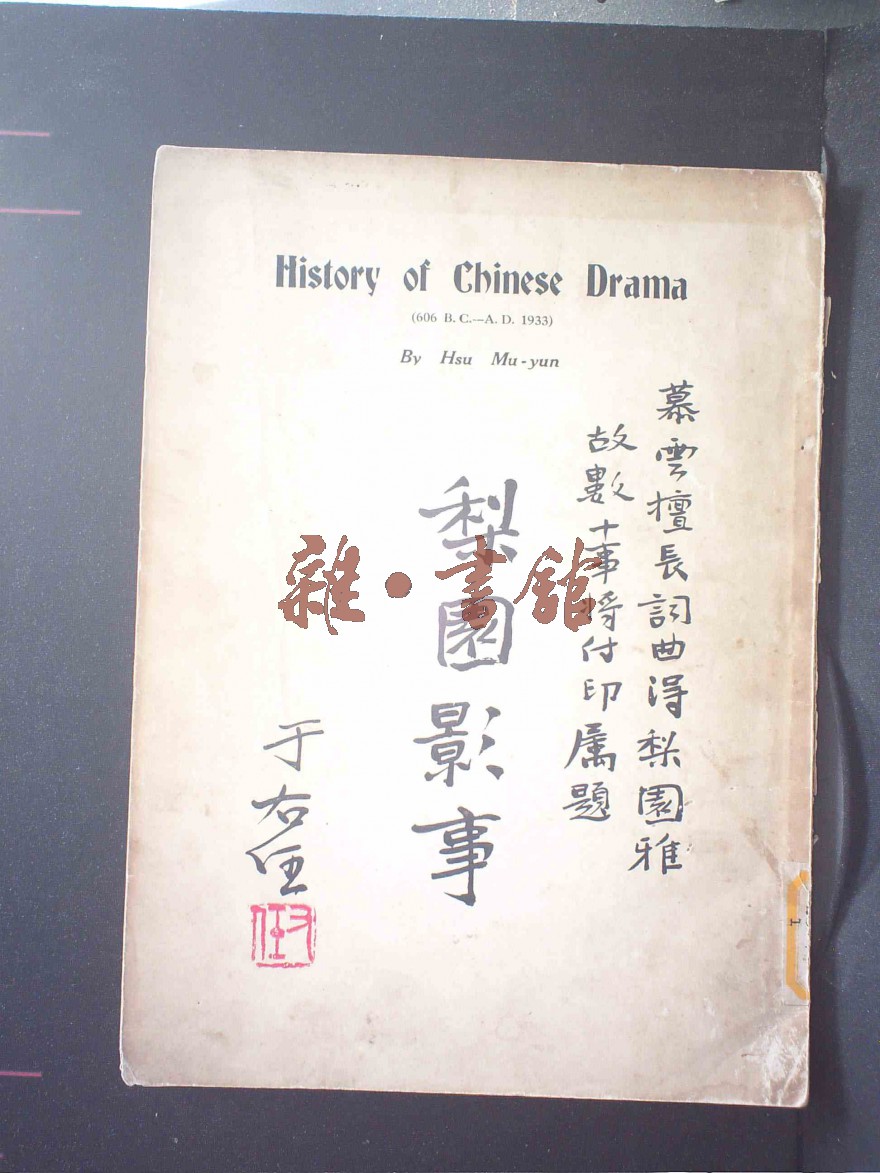 History of Chinese Drama
(606 B.C.—A.D. 1933)
By Hsu Mu-yun
慕雲擅長詞曲得梨園雅
故數十事将付印属題
梨園影事
于右任
雜·書館